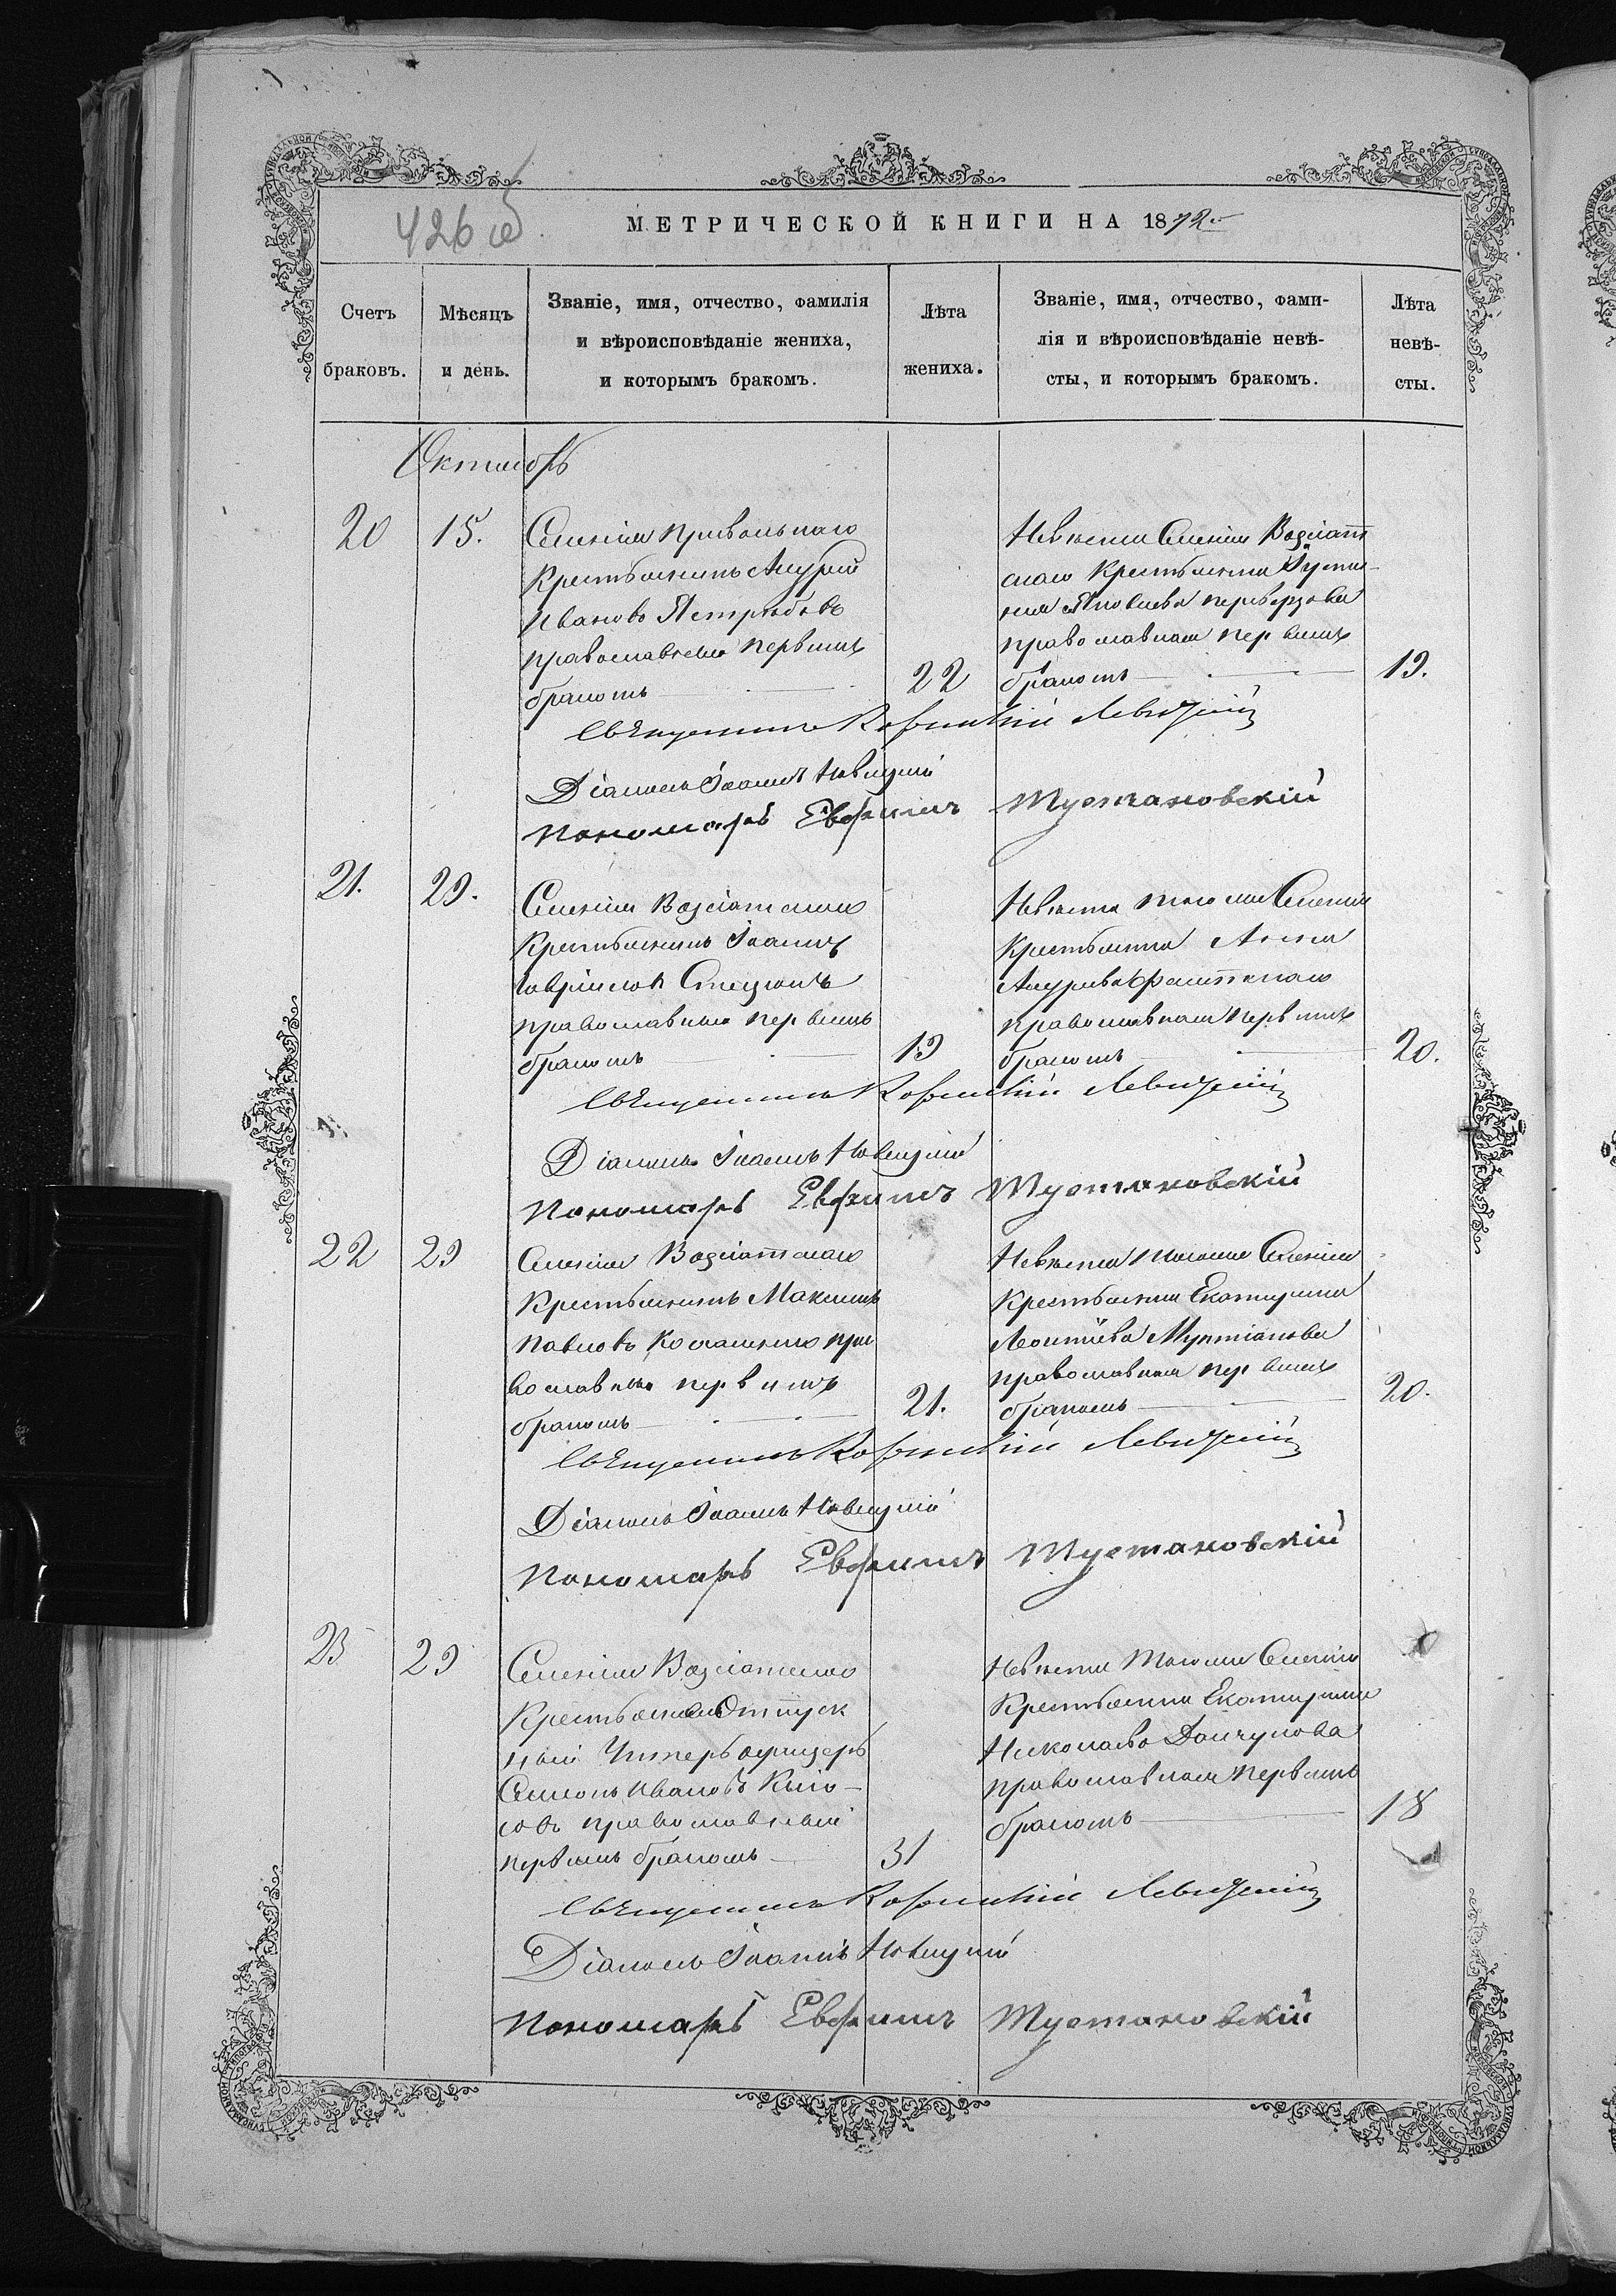 426 об
МЕТРИЧЕСКОЙ КНИГИ НА 1872
Счетъ браковъ.
Мѣсяцъ и день.
Званіе, имя, отчество, фамилія
и вѣроисповѣданіе жениха,
и которымъ бракомъ.
Лѣта жениха.
Званіе, имя, отчество, фами-
лія и вѣроисповѣданіе невѣ-
сты, и которымъ бракомъ.
Лѣта невѣ-
сты.
Октябрь
20 15.
Селенія Привольнаго
Крестьянинъ Андрей
Ивановъ Ястребовъ
православный первымъ
бракомъ
22
Невѣста Селенія Возсіят
скаго Крестьянка Іусти-
нія Яковлева
православная первымъ
бракомъ
19.
Священникъ Корнилій Левицкій
Діаконъ Іоаннъ Новицкій
Пономарь Евфимъ Тустановскій
21. 29.
Селенія Возсіятскаго
Крестьянинъ Іоаннъ
Гавріиловъ
православный первымъ
бракомъ
19
Невѣста того же Селенія
Крестьянка Анна
Андреева
православная первымъ
бракомъ
20.
Священникъ Корнилій Левицкій
Діаконъ Іоаннъ Новицкій
Пономарь Евфимъ Тустановскій
22 29
Селенія Возсіятскаго
Крестьянинъ Максимъ
Павловъ пра
вославный первымъ
бракомъ
21.
Невѣста того же Селенія
Крестьянка Екатерина
Леонтіева
православная первымъ
бракомъ
20.
Священникъ Корнилій Левицкій
Діаконъ Іоаннъ Новицкій
Пономарь Евфимъ Тустановскій
23 29
Селенія Возсіятскаго
Крестьянинъ Отпуск
ный Унтеръ офицеръ
Симеонъ Ивановъ
православный
первымъ бракомъ
31
Невѣста того же Селенія
Крестьянка Екатерина
Николаева Дончунова
православная первымъ
бракомъ
18
Священникъ Корнилій Левицкій
Діаконъ Іоаннъ Новицкій
Пономарь Евфимъ Тустановскій